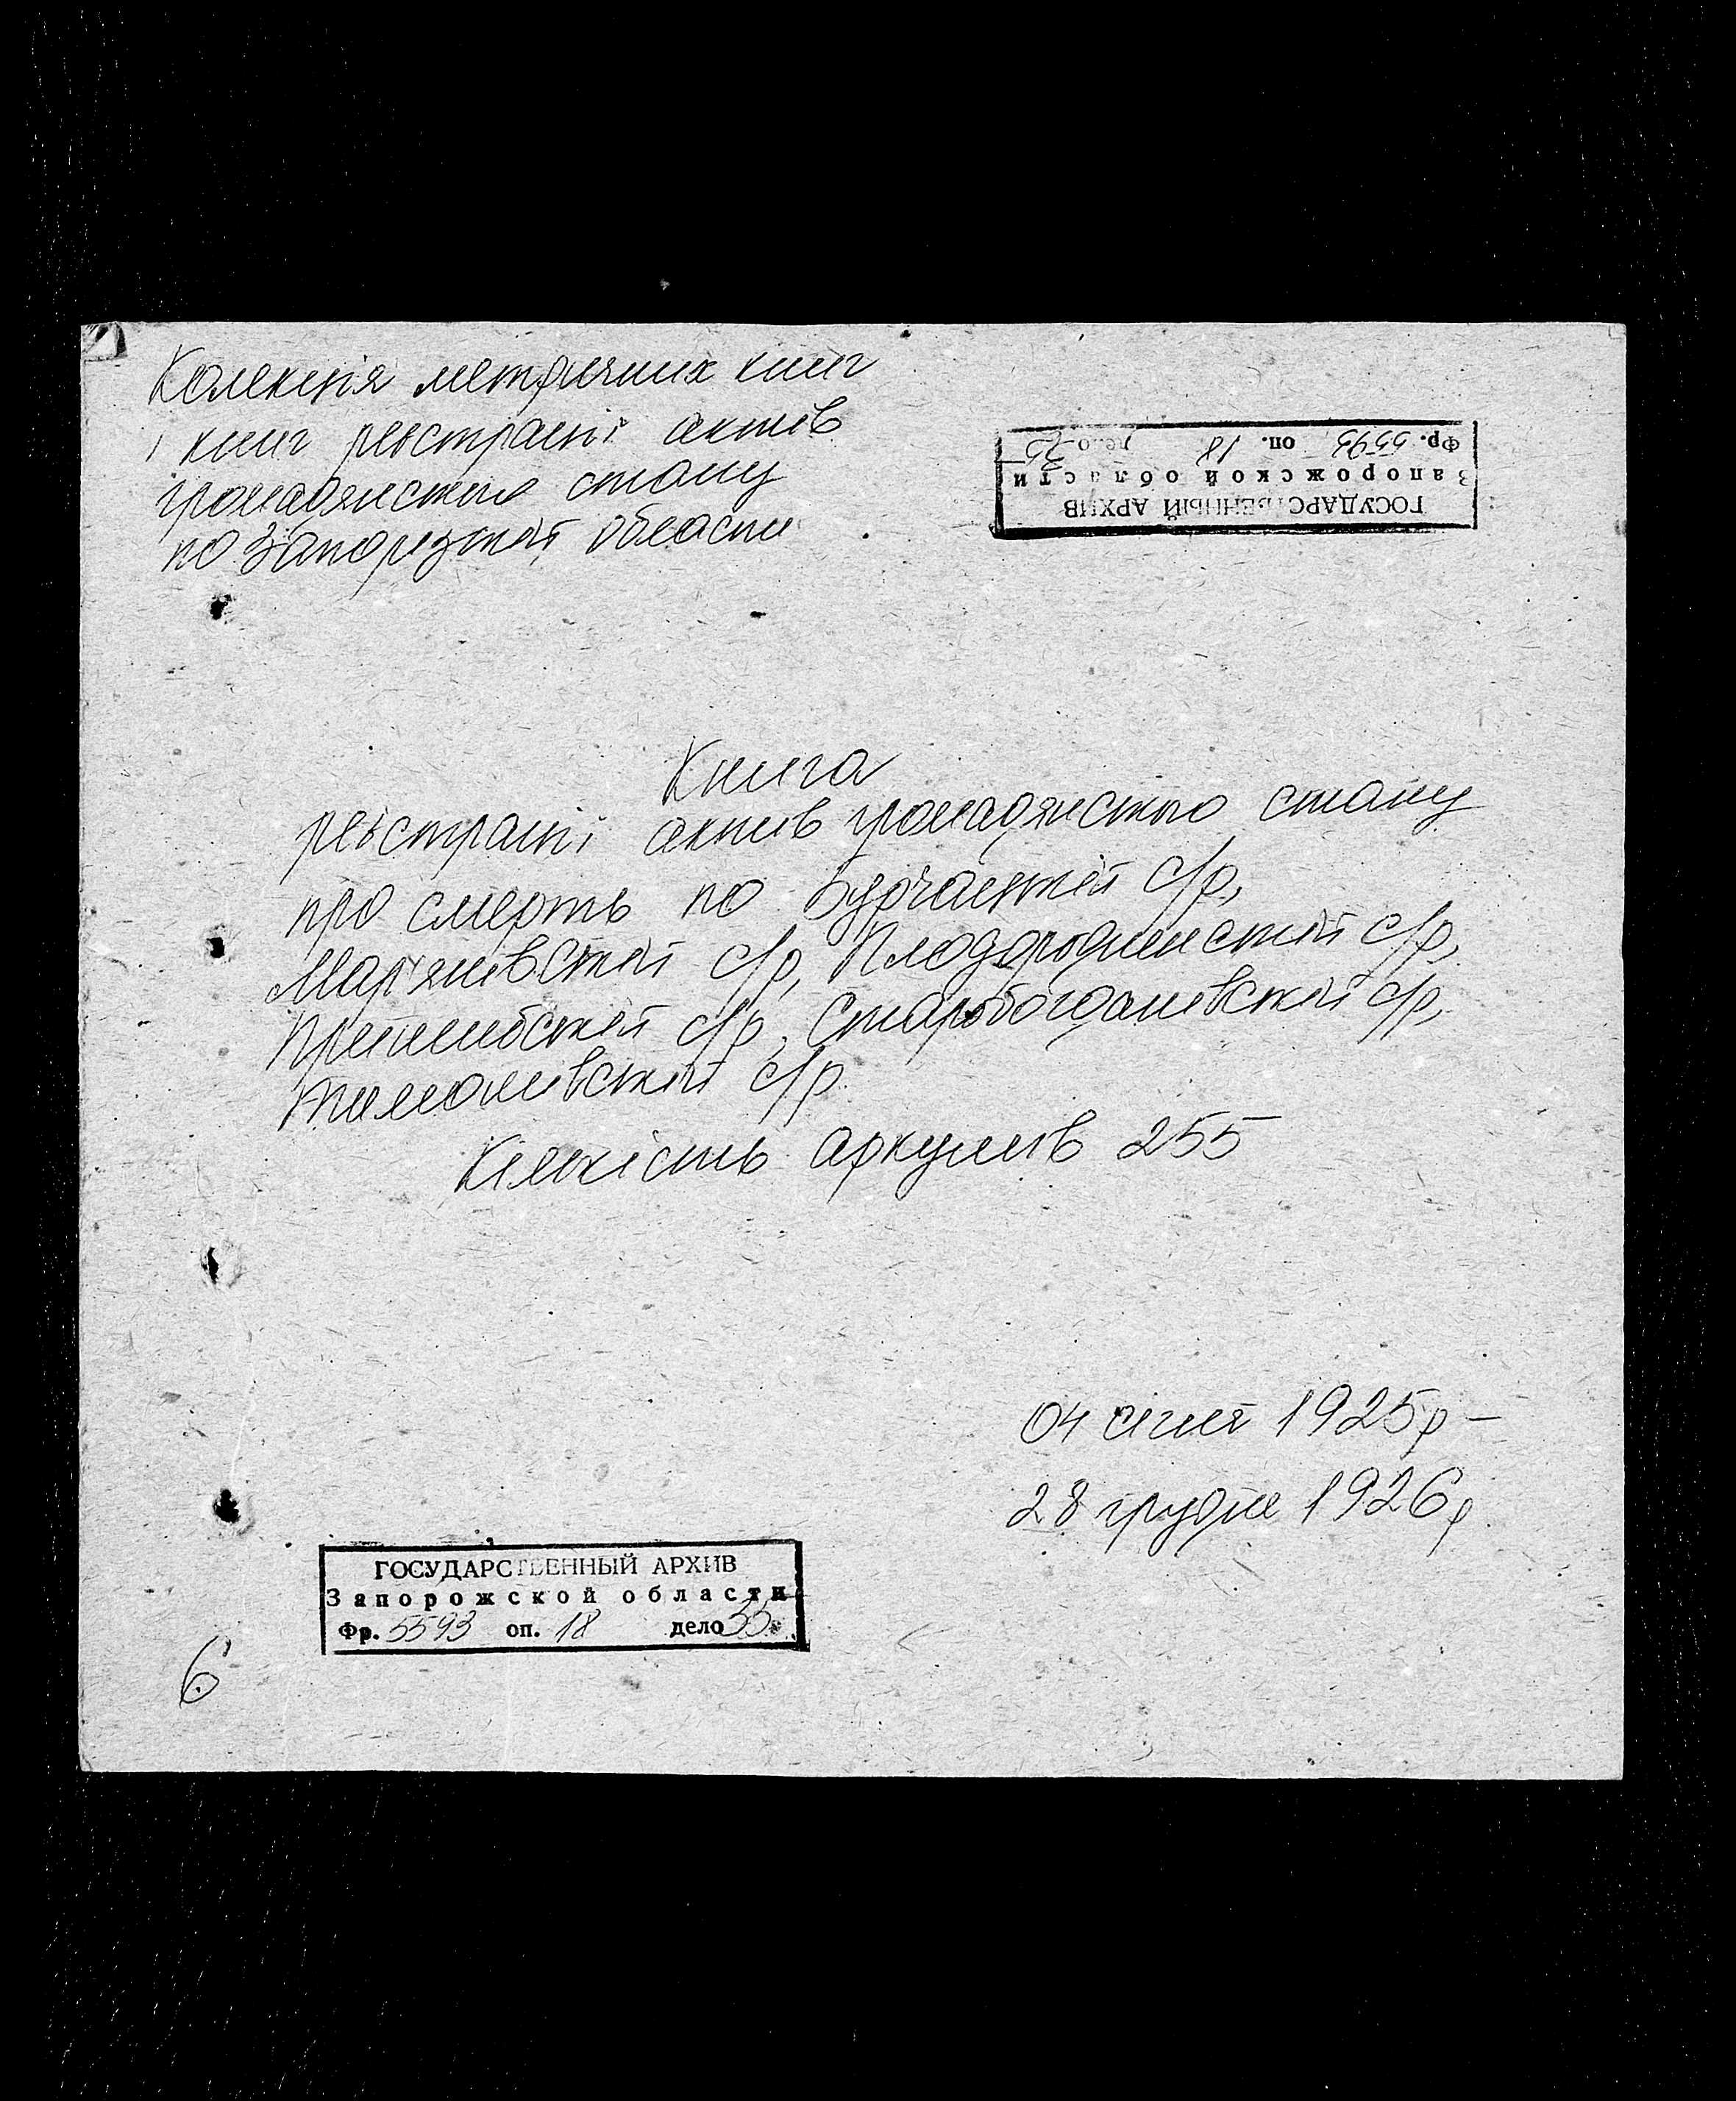 Колекція метричних книг
і книг реєстрації актів
громадянського стану
по Запорізькій області
ГОСУДАРСТВЕННЫЙ АРХИВ
Запорожской области
Фр. 5593 оп. 18 дело 35
Книга
реєстрації актів громадянського стану
про смерть по Бурчацькій с/р,
Мар'янівській с/р, Плодородненській с/р,
Пришибській с/р, Старобогданівській с/р,
Тимошівській с/р
Кількість аркушів 255
04 січня 1925 р –
28 грудня 1926 р
ГОСУДАРСТВЕННЫЙ АРХИВ
Запорожской области
Фр. 5593 оп. 18 дело 35
6